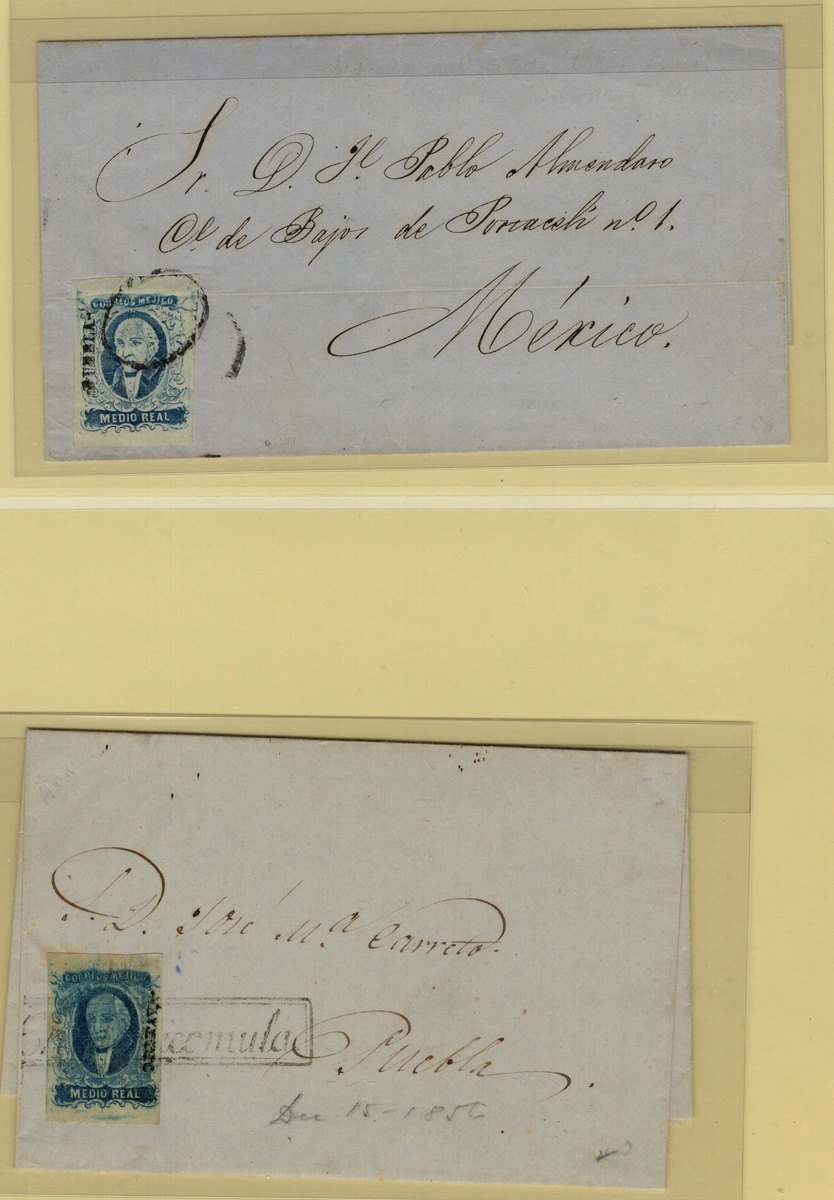 Sr. D. Jl. Pablo Almendaro
Cl de Bajos de Portaceli no. 1.
México.
CORREOS MEJICO
PUEBLA
MEDIO REAL
S. D. José Ma. Carreto.
Puebla
CORREOS MEJICO
MEDIO REAL
icomula
Dec 15 - 1856